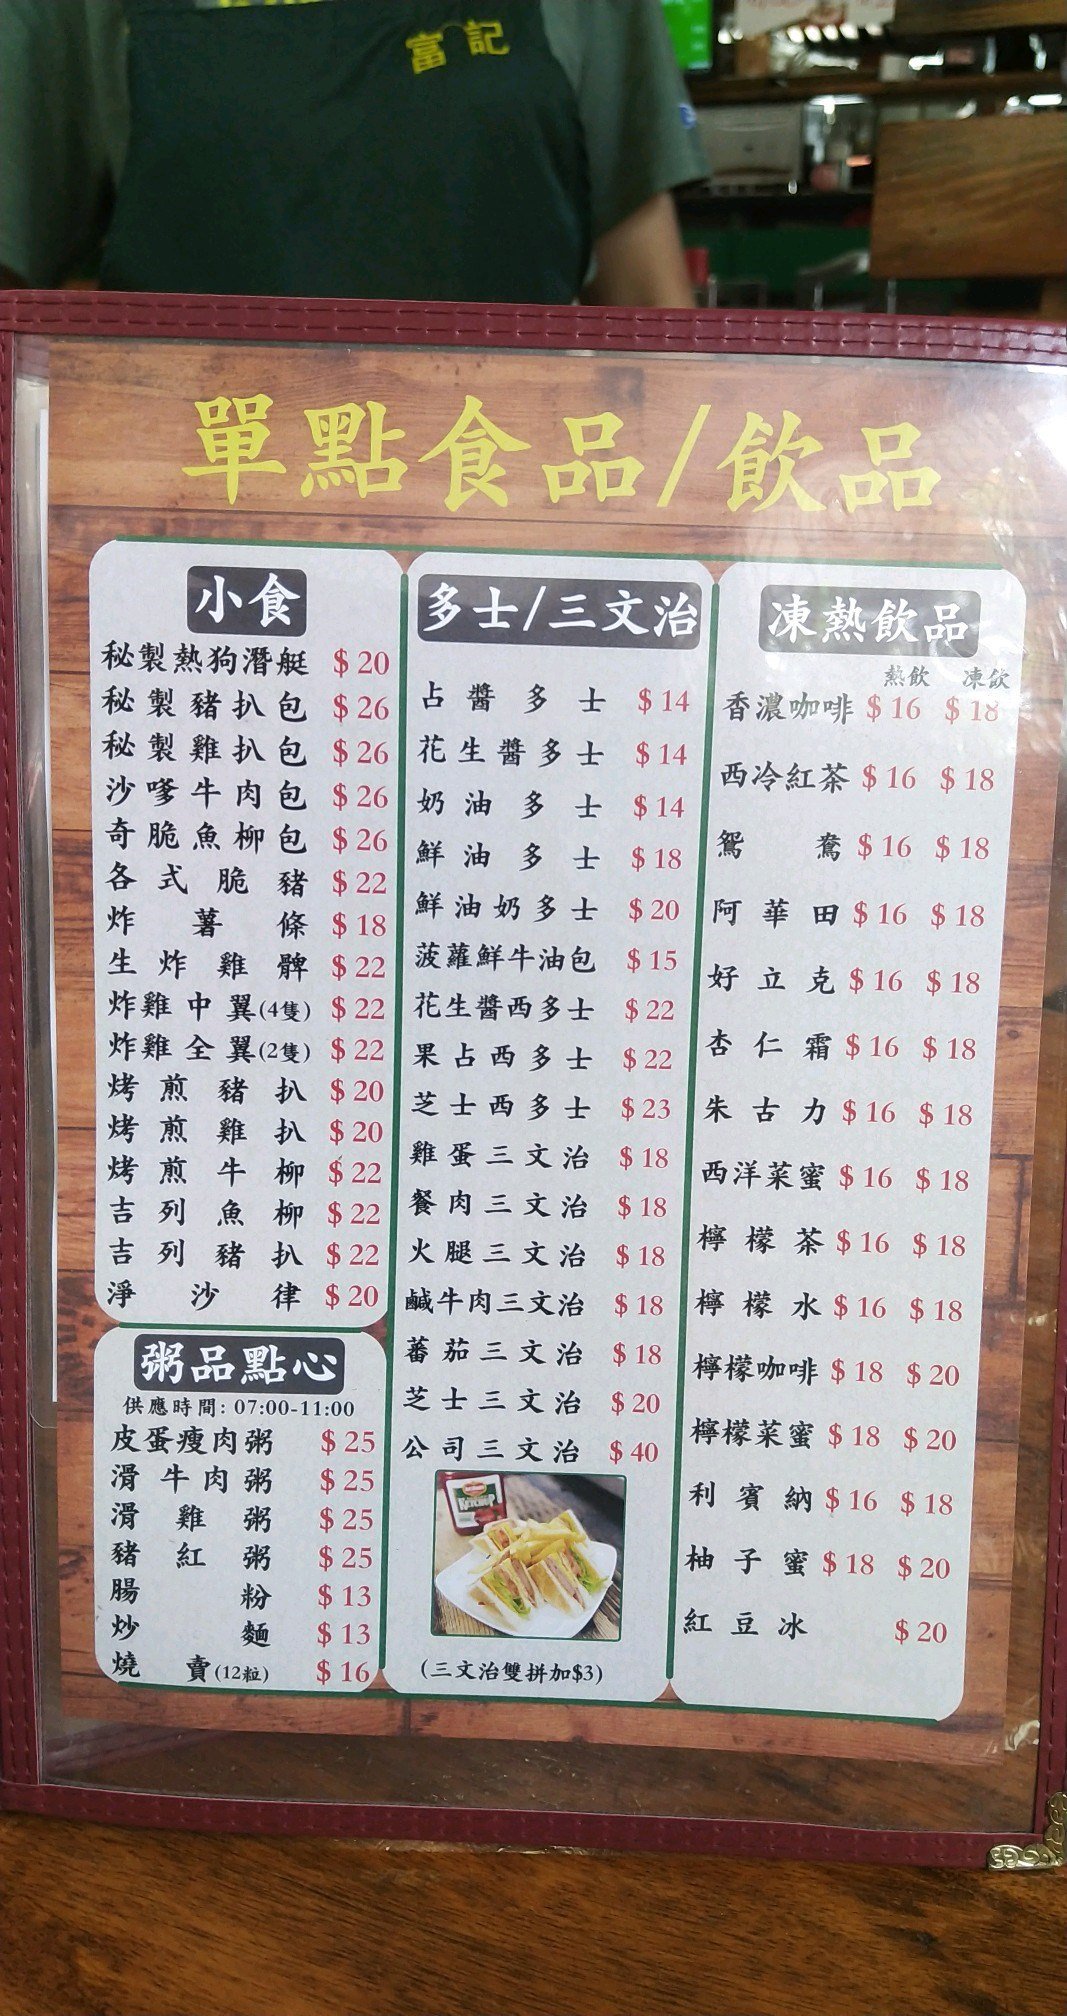 富記
單點食品/飲品
小食
秘製熱狗潛艇 $20
秘製豬扒包 $26
秘製雞扒包 $26
沙嗲牛肉包 $26
奇脆魚柳包 $26
各式脆豬 $22
炸薯條 $18
生炸雞髀 $22
炸雞中翼(4隻) $22
炸雞全翼(2隻) $22
烤煎豬扒 $20
烤煎雞扒 $20
烤煎牛柳 $22
吉列魚柳 $22
吉列豬扒 $22
淨沙律 $20
粥品點心
供應時間: 07:00-11:00
皮蛋瘦肉粥 $25
滑牛肉粥 $25
滑雞粥 $25
豬紅粥 $25
腸粉 $13
炒麵 $13
燒賣(12粒) $16
多士/三文治
占醬多士 $14
花生醬多士 $14
奶油多士 $14
鮮油多士 $18
鮮油奶多士 $20
菠蘿鮮牛油包 $15
花生醬西多士 $22
果占西多士 $22
芝士西多士 $23
雞蛋三文治 $18
餐肉三文治 $18
火腿三文治 $18
鹹牛肉三文治 $18
蕃茄三文治 $18
芝士三文治 $20
公司三文治 $40
KETCHUP
(三文治雙拼加$3)
凍熱飲品
熱飲 凍飲
香濃咖啡 $16 $18
西冷紅茶 $16 $18
鴛鴦 $16 $18
阿華田 $16 $18
好立克 $16 $18
杏仁霜 $16 $18
朱古力 $16 $18
西洋菜蜜 $16 $18
檸檬茶 $16 $18
檸檬水 $16 $18
檸檬咖啡 $18 $20
檸檬菜蜜 $18 $20
利賓納 $16 $18
柚子蜜 $18 $20
紅豆冰 $20